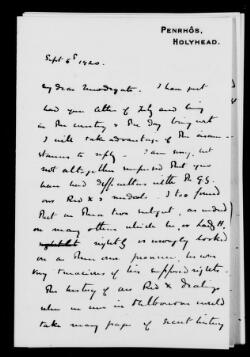 PENRHÔS,
HOLYHEAD.
Sept 6th 1920.
My dear Novar. I have just
had your letter of July and being
in the country & the day being wet
I will take advantage of the circum-
stances to reply. I am sorry, but
not altogether surprised that you
have had difficulties with the G.G.
over Red X & medals. I too found
that on these two subjects, as indeed
on many others which he, or Lady H.
rightly or wrongly looked
on as their own province, he was
very tenacious of his supposed rights.
The history of our Red X dealings
when we were in Melbourne would
take many pages of secret history